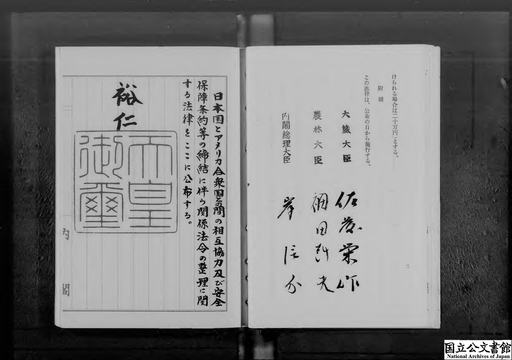 けられる場合は二十万円)とする。
附則
この法律は、公布の日から施行する。
大蔵大臣 佐藤栄作
農林大臣 福田赳夫
内閣総理大臣 岸信介
日本国とアメリカ合衆国との間の相互協力及び安全
保障条約等の締結に伴う関係法令の整理に関
する法律をここに公布する。
裕仁
天皇
御璽
内閣
国立公文書館
National Archives of Japan